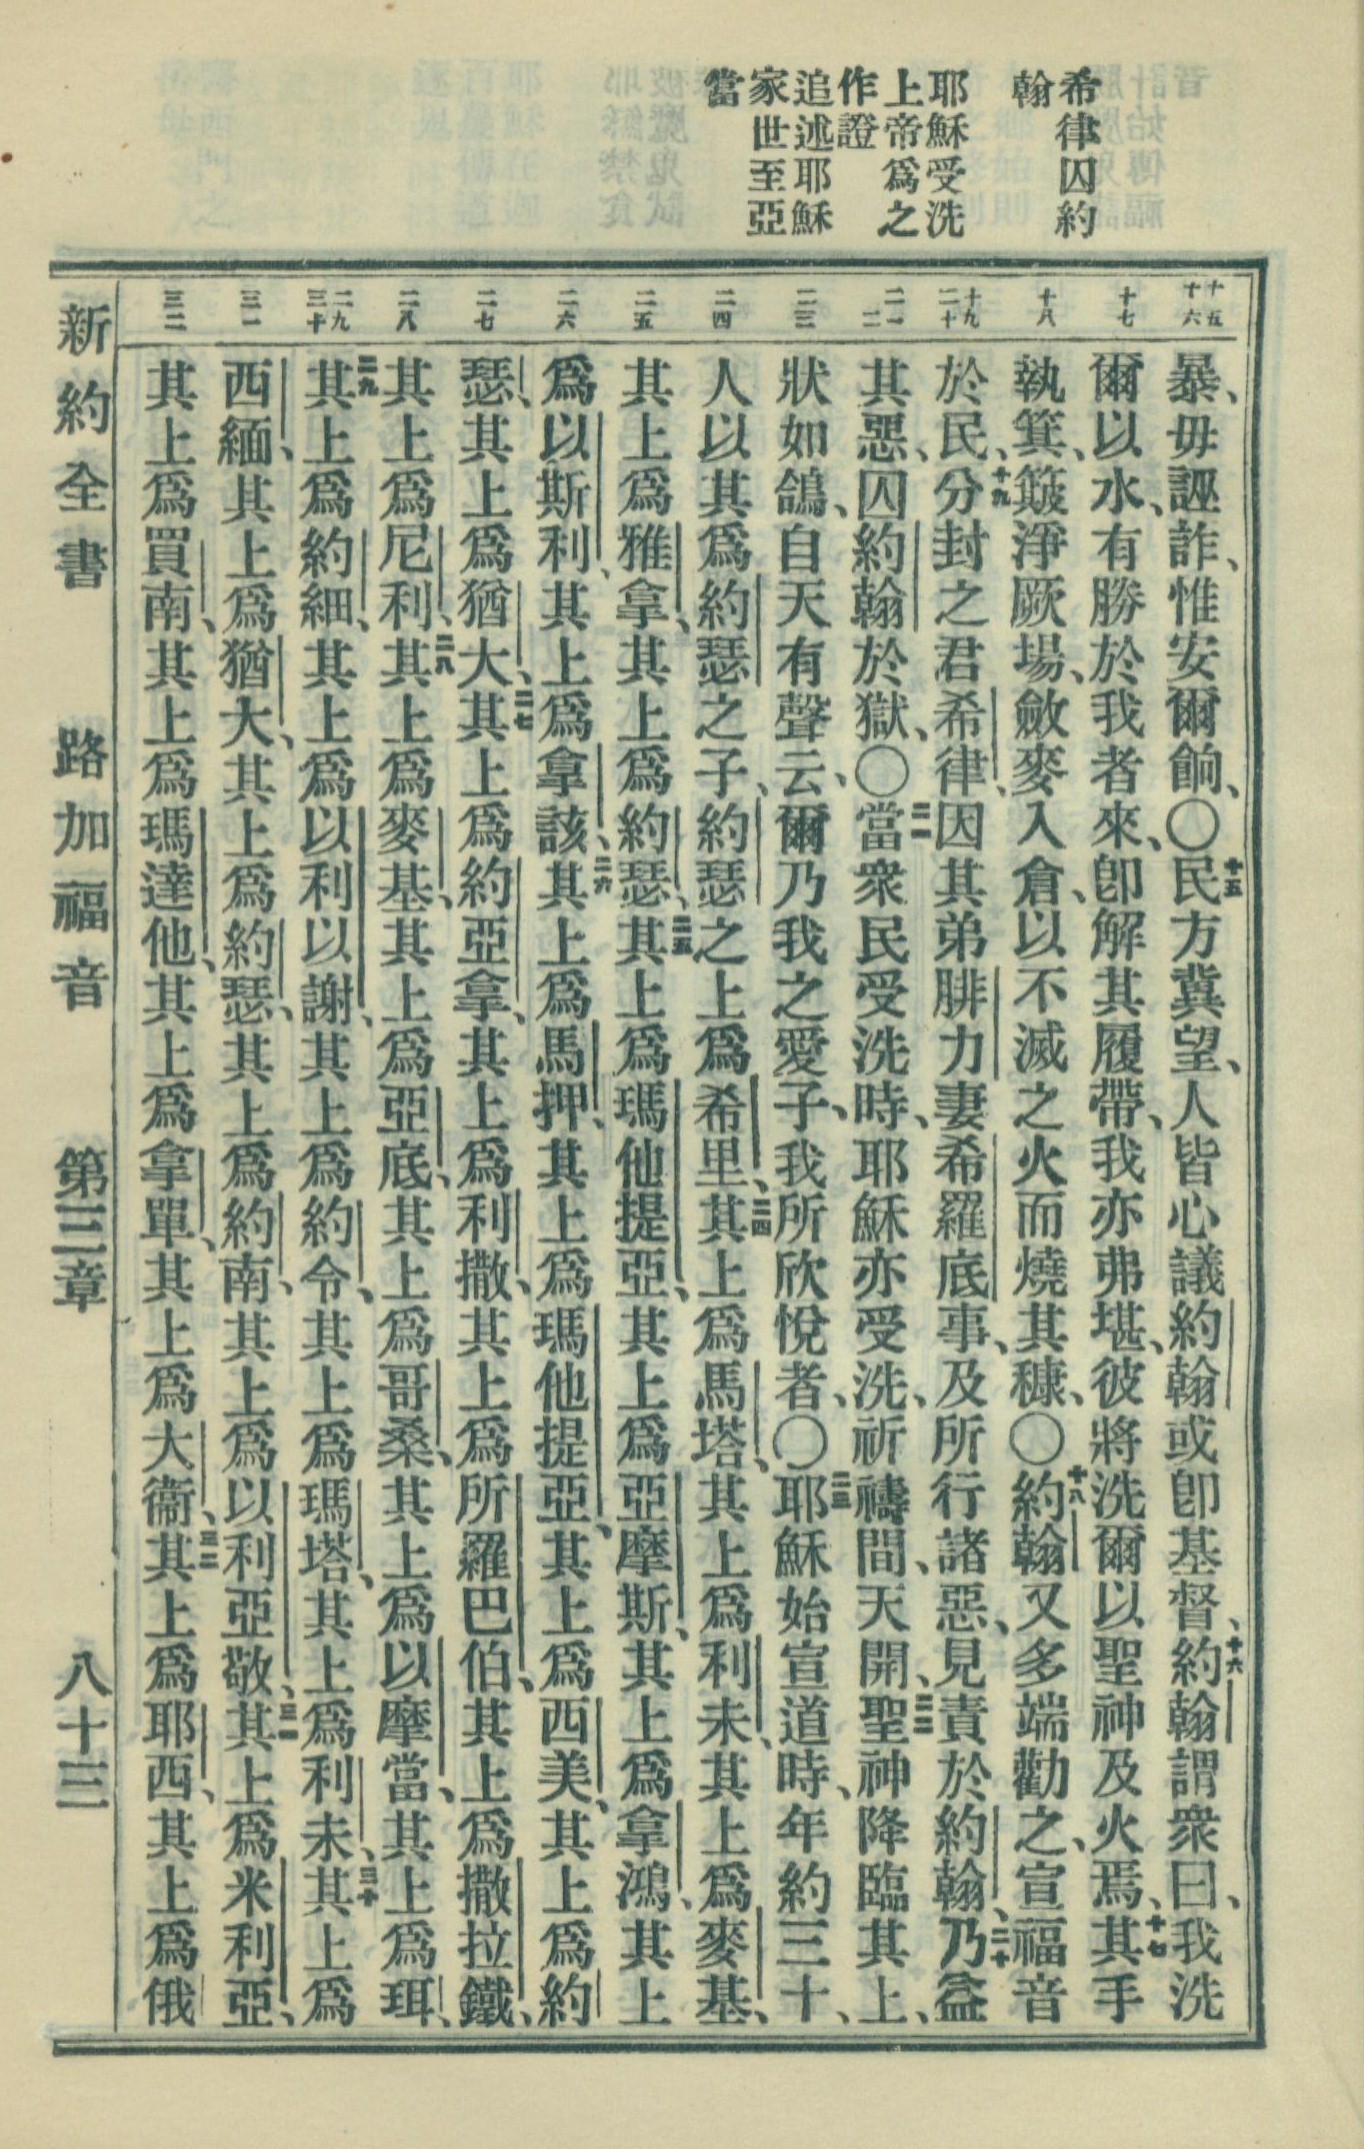 希律囚約
翰
耶穌受洗
上帝爲之
作證
追述耶穌
家世至亞
當
十五
十六
十七
十八
十九
二十
二一
二二
二三
二四
二五
二六
二七
二八
二九
三十
三一
三二
暴、毋誣詐、惟安爾餉、〇十五民方冀望、人皆心議約翰或卽基督、十六約翰謂衆曰、我洗
爾以水、有勝於我者來、卽解其履帶、我亦弗堪、彼將洗爾以聖神及火焉、十七其手
執箕、簸淨厥場、斂麥入倉、以不滅之火而燒其糠、〇十八約翰又多端勸之、宣福音
於民、十九分封之君希律、因其弟腓力妻希羅底事、及所行諸惡、見責於約翰、二十乃益
其惡、囚約翰於獄、〇二一當衆民受洗時、耶穌亦受洗、祈禱間、天開、二二聖神降臨其上、
狀如鴿、自天有聲云、爾乃我之愛子、我所欣悅者、〇二三耶穌始宣道時、年約三十、
人以其爲約瑟之子、約瑟之上爲希里、二四其上爲馬塔、其上爲利未、其上爲麥基、
其上爲雅拿、其上爲約瑟、二五其上爲瑪他提亞、其上爲亞摩斯、其上爲拿鴻、其上
爲以斯利、其上爲拿該、二六其上爲馬押、其上爲瑪他提亞、其上爲西美、其上爲約
瑟、其上爲猶大、二七其上爲約亞拿、其上爲利撒、其上爲所羅巴伯、其上爲撒拉鐵、
其上爲尼利、二八其上爲麥基、其上爲亞底、其上爲哥桑、其上爲以摩當、其上爲珥、
二九其上爲約細、其上爲以利以謝、其上爲約令、其上爲瑪塔、其上爲利未、三十其上爲
西緬、其上爲猶大、其上爲約瑟、其上爲約南、其上爲以利亞敬、三一其上爲米利亞、
其上爲買南、其上爲瑪達他、其上爲拿單、其上爲大衞、三二其上爲耶西、其上爲俄
新約全書　路加福音　第三章　八十三